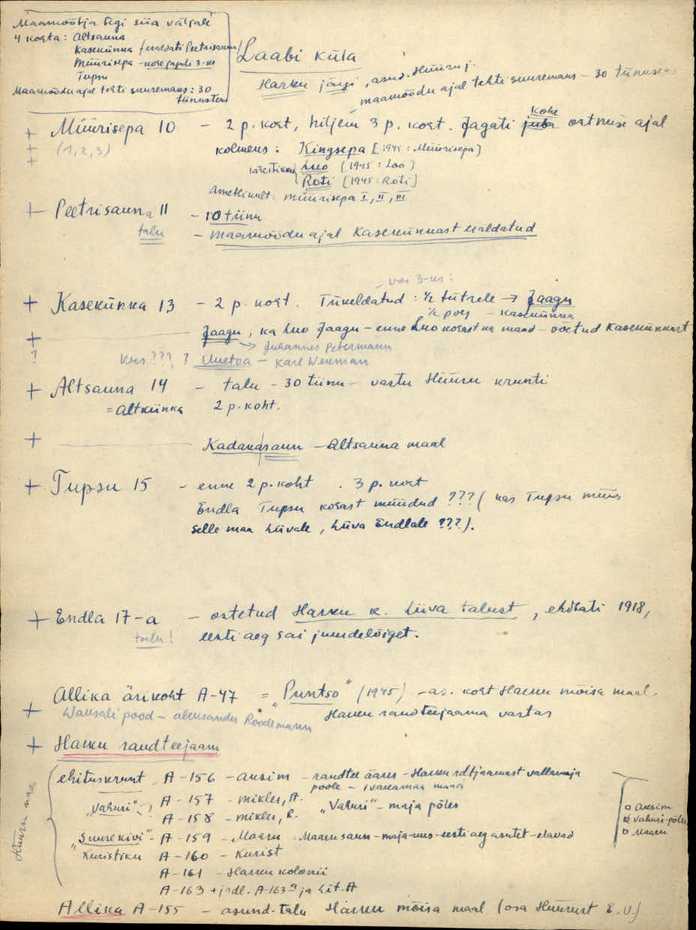 Maamõõtja tegi siia väljale
4 kohta: Altsauna
Kasekünka /eraldati Peetrisauna/
Müürisepa -
Tupsu
Maamõõdu ajal tehti suuremaks: 30
tiinusteks
Laabi küla
Harku järgi, asund. Hüüru j.
maamõõdu ajal tehti suuremaks - 30 tiinuseks
+ Müürisepa 10 - 2 p. koht, hiljem 3 p. koht. Jagati juba ostmise ajal
kohe
(1,2,3)
kolmeks: Kingsepa [1945: Müürisepa]
Luo [1945: Loo]
Roti [1945: Roti]
ametlikult: Müürisepa I, II, III
+ Peetrisauna 11 - 10 tiinu
talu - maamõõdu ajal Kasekünkast eraldatud
+ Kasekünka 13 - 2 p. koht. Tükeldatud: ½ tütrele → Jaagu
vas 3-ks:
½ poeg - Kasekünka
+ Jaagu, ka Luo Jaagu - enne Luo kohast ka maad - ostetud Kasekünkast
→ Johannes Petermann
? Kus??? ? Uuetoa - Karl Weuman
+ Altsauna 14 - talu - 30 tiinu - vastu Hüüru krunti
= Altkünka 2 p. koht.
+ Kadakasauna - Altsauna maal
+ Tupsu 15 - enne 2 p. koht . 3 p. koht
Endla Tupsu kohast müüdud ??? (kas Tupsu müüs
selle maa Liivale, Liiva Endlale ???).
+ Endla 17-a - ostetud Harku k. Liiva talust, ehitati 1918,
talu! eesti aeg sai juurdelõiget.
+ Allika ärikoht A-47 = "Puntso" (1945) - as. koht Harku mõisa maal.
Wansali pood - Aleksander Roodemann Harku raudteejaama vastas
+ Harku raudteejaam
Hüüru maa
ehituskrunt A-156 - Ansim - raudtee ääres - Harku rdtjaamast vallamaja
poole -
"Vahuri" - A-157 - Mikler, A. "Vahuri" - maja põles
A-158 - Mikler, E.
"Suurekivi" - A-159 - Maeru - Maeru saun - maja uus - eesti aeg asutet - elavad
Kuristiku A-160 - Kurist
A-161 - Harku kolonii
A-163 + jrdl. A-163ª ja Lit. A
o Ansim
Vahuri-põles
o Maeru
Allika A-155 - asund-talu Harku mõisa maal (osa Hüürust E.V.)